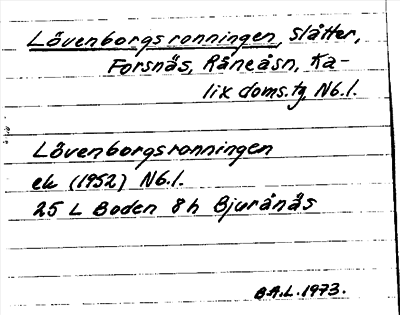 Lövenborgsronningen, slåtter,
Forsnäs, Råneåsn, Ka-
lix doms.tg, Nb.l.
Lövenborgsronningen
ek (1952) Nb.l.
25 L Boden 8h Bjurånäs
B.A.L. 1973.